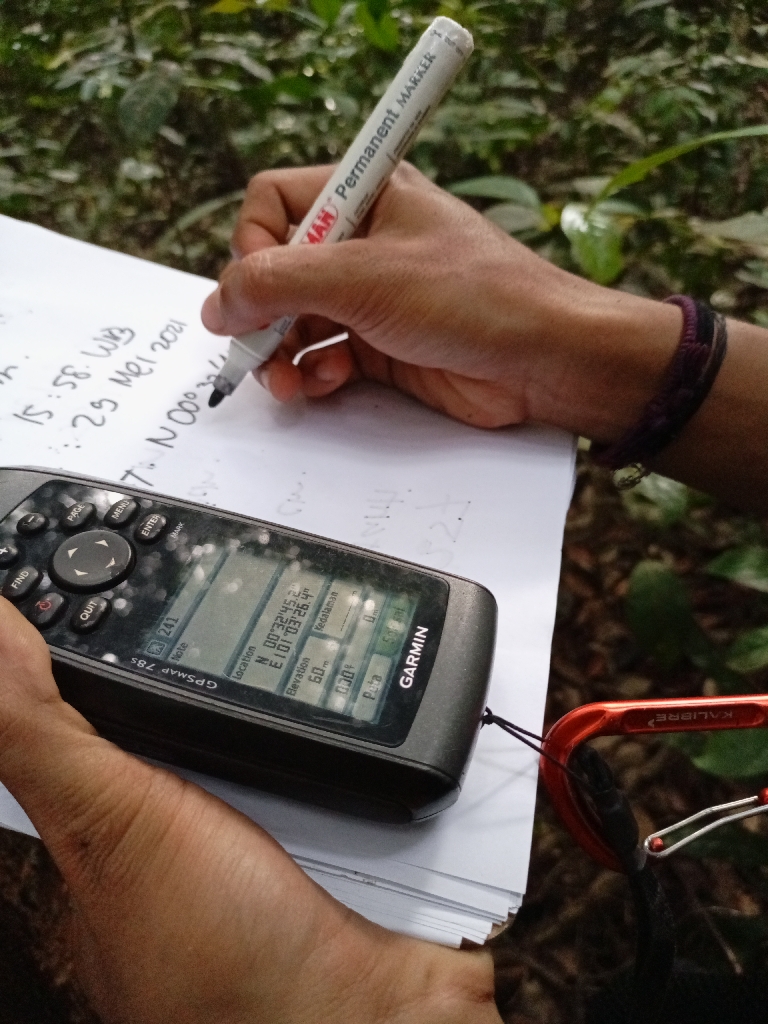 Permanent MARKER
MAN
15:58 WIB
29 MEI 2021
N 00°32'
PAGE
MENU
ENTER
MARK
FIND
QUIT
GPSMAP 78s
241
Note
Location
N 00°32'45.2"
E 101°03'26.4"
Elevation
60m
Kedalaman
000°F
Peta
GARMIN
KALIBRE